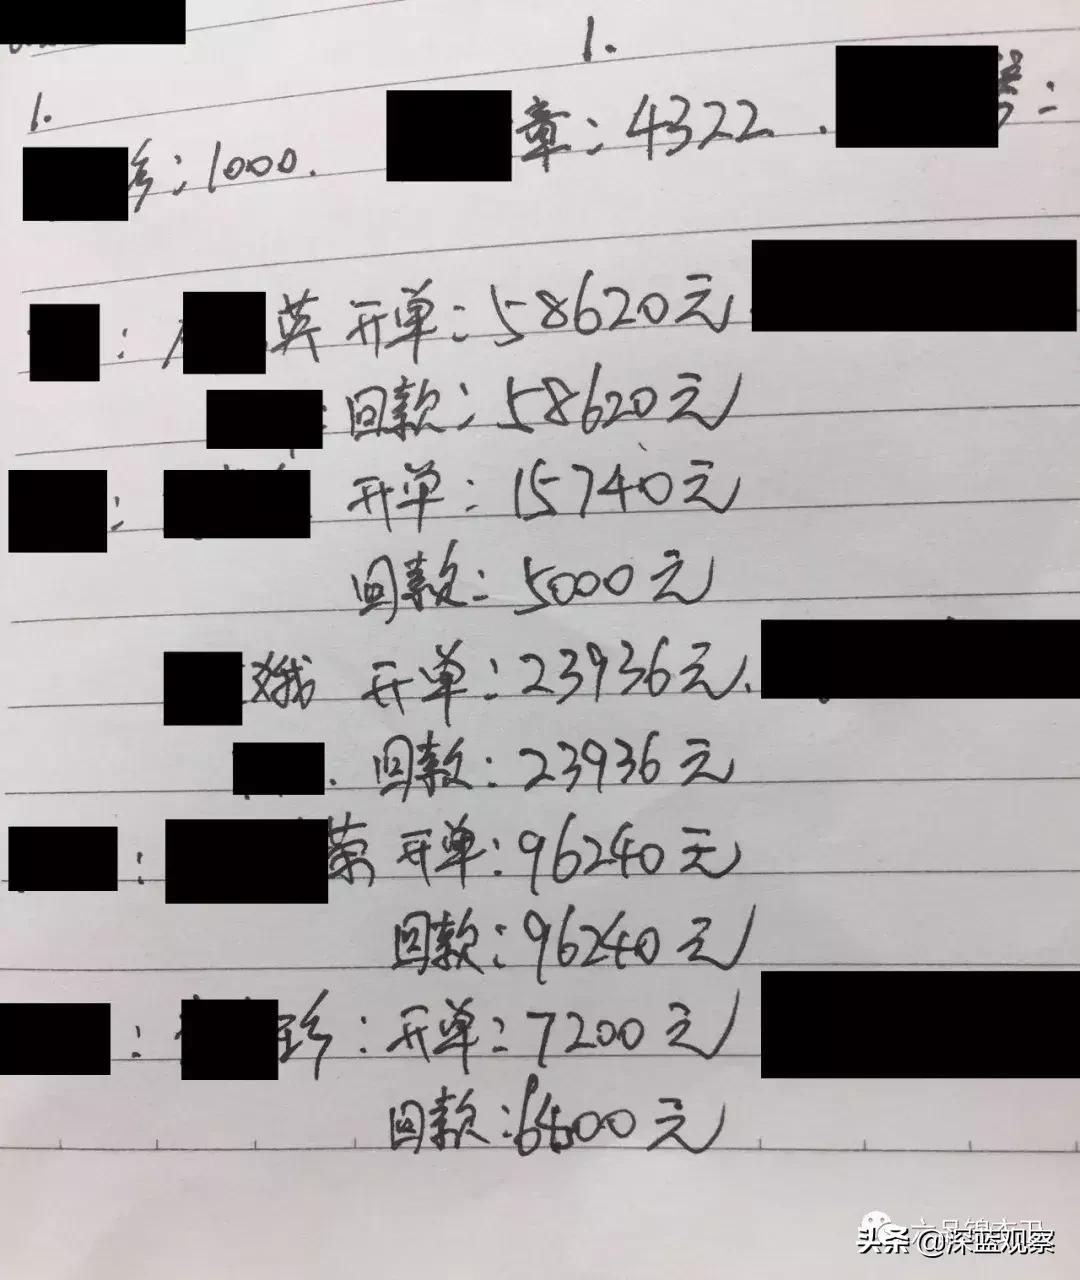 1.
1.
章：4322.
：1000.
英 开单：58620元
回款：58620元
： 开单：15740元
回款：5000元
娥 开单：23936元.
回款：23936元
： 荣 开单：96240元
回款：96240元
： 珍：开单：7200元
回款：6400元
头条 @深蓝观察